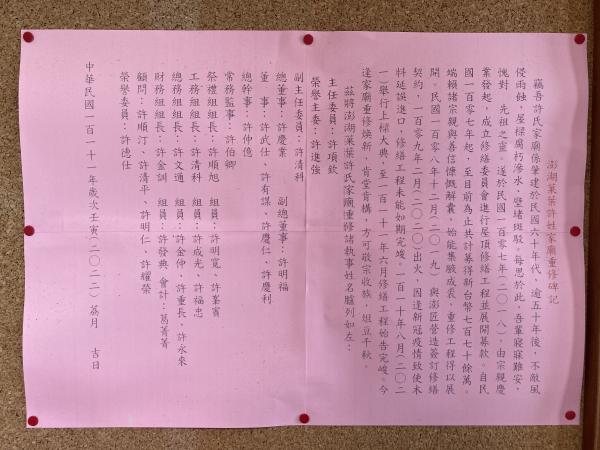 澎湖菓葉許姓家廟重修碑記
竊吾許氏家廟係肇建於民國六十年代，逾五十年後，不敵風
侵雨蝕，屋樑腐朽滲水，壁堵斑駁，每思於此，吾輩寢寐難安，
愧對　先祖之靈。遂於民國一百零七年(二○一八)，由宗親慶
業發起，成立修繕委員會進行屋頂修繕工程並展開募款。自民
國一百零七年起，至目前為止共計募得新台幣七百七十餘萬。
端賴諸宗親與善信慷慨解囊，始能集腋成裘，重修工程得以展
開。民國一百零八年十二月(二○一九)，與澎匠營造簽訂修繕
契約，一百零九年二月(二○二○)出火，因逢新冠疫情致使木
料延誤進口，修繕工程未能如期完竣。一百一十年八月(二○二
一)舉行上樑大典，至一百一十一年六月修繕工程始告完竣。今
逢家廟重修煥新，肯堂肯構，方可敬宗收族，俎豆千秋。
茲將澎湖菓葉許氏家廟重修諸執事姓名臚列如左：
主任委員：許項欽
榮譽主委：許進強
副主任委員：許清科
總董事：許慶業　副總董事：許明福
董　事：許武仕、許有謀、許慶仁、許慶利
總幹事：許仲億
常務監事：許伯卿
祭禮組組長：許順旭　組員：許明寬、許峯賓
工務組組長：許清科　組員：許成光、許福忠
總務組組長：許文通　組員：許金仲、許重長、許永來
財務組組長：許金訓　組員：許發典　會計：葛菁菁
顧問：許順汀、許清平、許明仁、許耀榮
榮譽委員：許德仕
中華民國一百一十一年歲次壬寅(二○二二)荔月　吉日